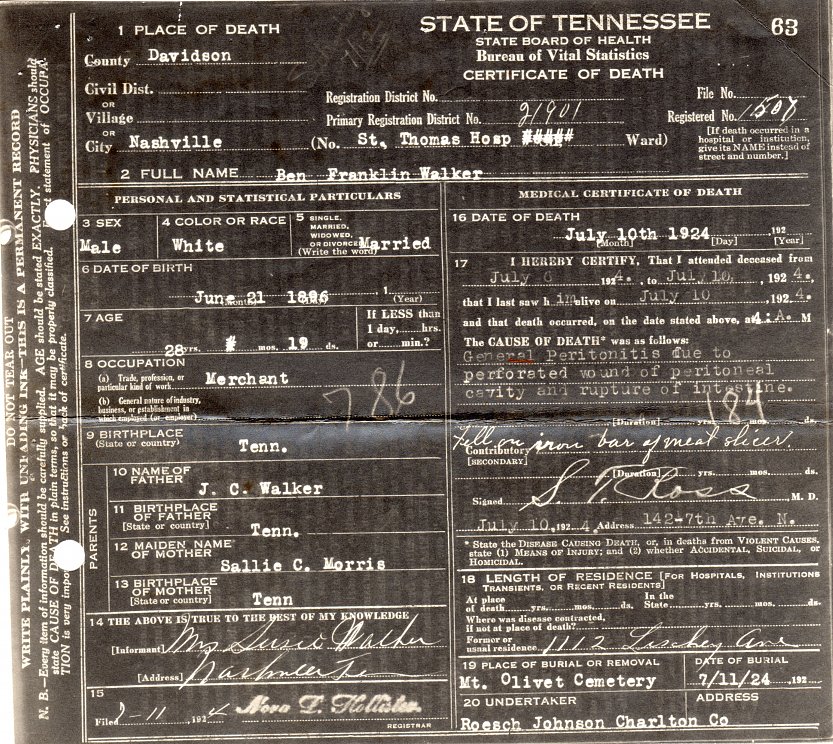 1 PLACE OF DEATH
County Davidson
Civil Dist.
OR
Village
OR
City Nashville (No. St. Thomas Hosp ##### Ward)
STATE OF TENNESSEE 63
STATE BOARD OF HEALTH
Bureau of Vital Statistics
CERTIFICATE OF DEATH
Registration District No. File No.
Primary Registration District No. 21901 Registered No. 1508
[If death occurred in a
hospital or institution,
give its NAME instead of
street and number.]
2 FULL NAME Ben Franklin Walker
PERSONAL AND STATISTICAL PARTICULARS
3 SEX
Male
4 COLOR OR RACE
White
5 SINGLE,
MARRIED,
WIDOWED,
OR DIVORCED Married
(Write the word)
6 DATE OF BIRTH
June 21 1896 1
(Month) (Year)
7 AGE
28 yrs. # mos. 19 ds.
If LESS than
1 day, hrs.
or min.?
8 OCCUPATION
(a) Trade, profession, or
particular kind of work. Merchant
(b) General nature of industry,
business, or establishment in
which employed (or employer)
786
9 BIRTHPLACE
(State or country) Tenn.
PARENTS
10 NAME OF
FATHER J. C. Walker
11 BIRTHPLACE
OF FATHER
[State or country] Tenn.
12 MAIDEN NAME
OF MOTHER Sallie C. Morris
13 BIRTHPLACE
OF MOTHER
[State or country] Tenn
14 THE ABOVE IS TRUE TO THE BEST OF MY KNOWLEDGE
[Informant] Mrs Susie Walker
[Address] Nashville Ten
15
Filed 7-11, 1924 Nora L. Hollister
REGISTRAR
MEDICAL CERTIFICATE OF DEATH
16 DATE OF DEATH
July 10th 1924 192
[Month] [Day] [Year]
17 I HEREBY CERTIFY, That I attended deceased from
July 6 1924., to July 10, 1924.,
that I last saw him alive on July 10, 1924.
and that death occurred, on the date stated above, at 4:A. M
The CAUSE OF DEATH* was as follows:
General Peritonitis due to
perforated wound of peritoneal
cavity and rupture of intestine.
184
[Duration] yrs. mos. ds.
Contributory Fell on iron bar of meat slicer
[SECONDARY]
[Duration] yrs. mos. ds.
Signed S. T. Ross M. D.
July 10, 1924. Address 142-7th Ave. N.
* State the DISEASE CAUSING DEATH, or, in deaths from VIOLENT CAUSES,
state (1) MEANS OF INJURY; and (2) whether ACCIDENTAL, SUICIDAL, or
HOMICIDAL.
18 LENGTH OF RESIDENCE [FOR HOSPITALS, INSTITUTIONS
TRANSIENTS, OR RECENT RESIDENTS]
At place
of death yrs. mos. ds.
In the
State yrs. mos. ds.
Where was disease contracted,
if not at place of death?
Former or
usual residence 1112 Lischey Ave
19 PLACE OF BURIAL OR REMOVAL
Mt. Olivet Cemetery
DATE OF BURIAL
7/11/24, 192
20 UNDERTAKER
Roesch Johnson Charlton Co
ADDRESS
DO NOT TEAR OUT
WRITE PLAINLY WITH UNFADING INK—THIS IS A PERMANENT RECORD
N. B.—Every item of information should be carefully supplied. AGE should be stated EXACTLY. PHYSICIANS should
state CAUSE OF DEATH in plain terms, so that it may be properly classified. statement of OCCUPA-
TION is very See instructions on back of certificate.